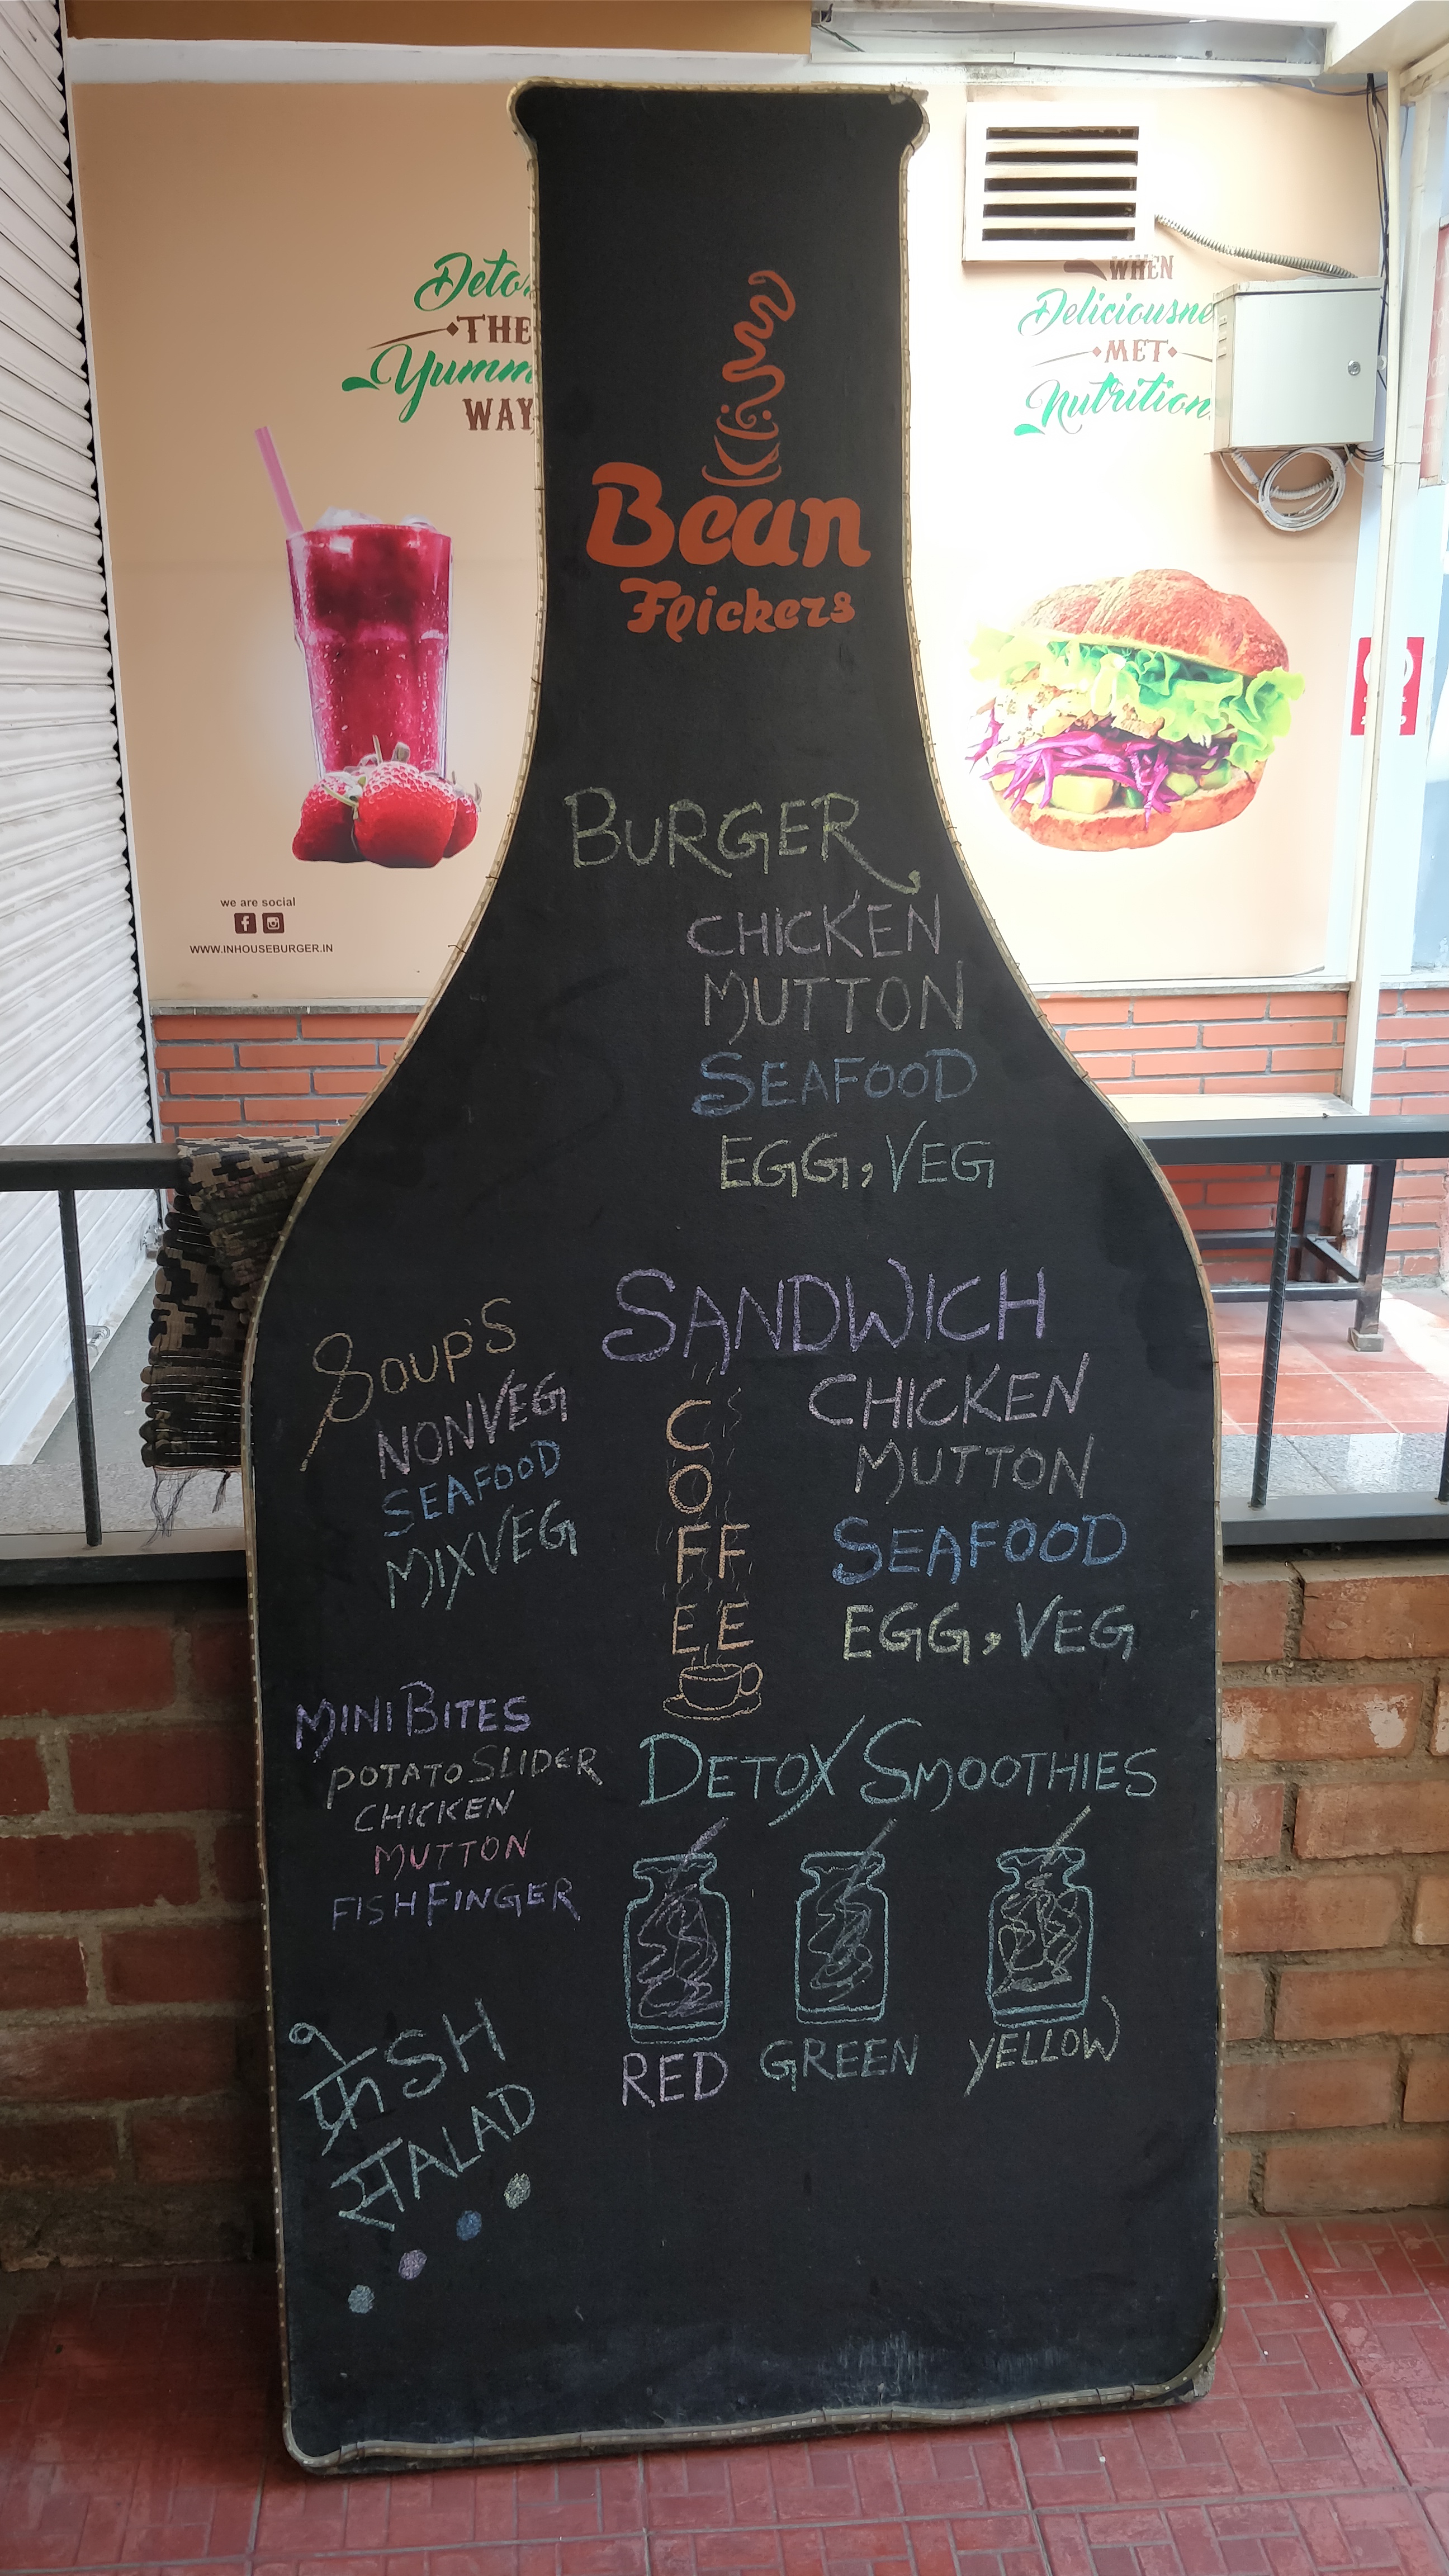 Detox
THE
Yumm
WAY
we are social
WWW.INHOUSEBURGER.IN
WHEN
Deliciousne
MET
Nutrition
Bean
Flickers
BURGER
CHICKEN
MUTTON
SEAFOOD
EGG, VEG
SANDWICH
CHICKEN
MUTTON
SEAFOOD
EGG, VEG
SOUP'S
NONVEG
SEAFOOD
MIXVEG
C
O
FF
EE
MINI BITES
POTATO SLIDER
CHICKEN
MUTTON
FISH FINGER
DETOX SMOOTHIES
RED GREEN YELLOW
फ्रेSH
सALAD